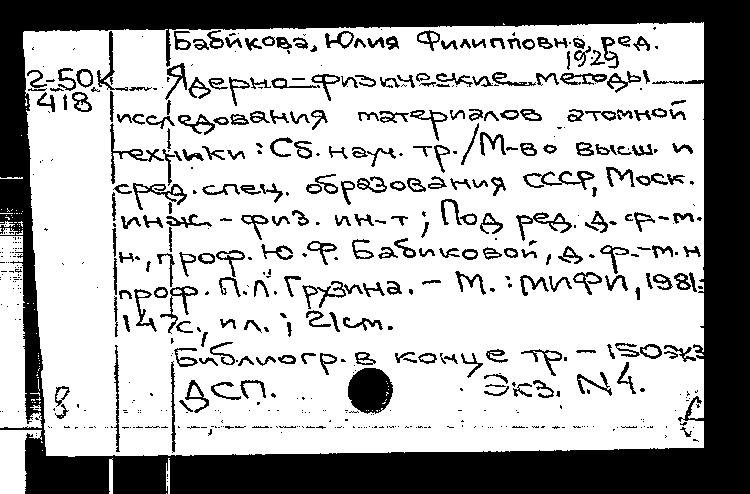 Бабикова, Юлия Филипповна, ред.
1929
2-50К
1418
Ядерно-физические методы
исследования материалов атомной
техники: Сб. науч. тр./М-во высш. и
сред. спец. образования СССР, Моск.
инж.-физ. ин-т; Под ред. д. ф.-м.
н., проф. Ю.Ф. Бабиковой, д. ф.-м. н
проф. П.Л. Грузина. - М.: МИФИ, 1981.
147с., ил.; 21см.
Библиогр. в конце тр. - 150экз
8. ДСП. Экз. N4.